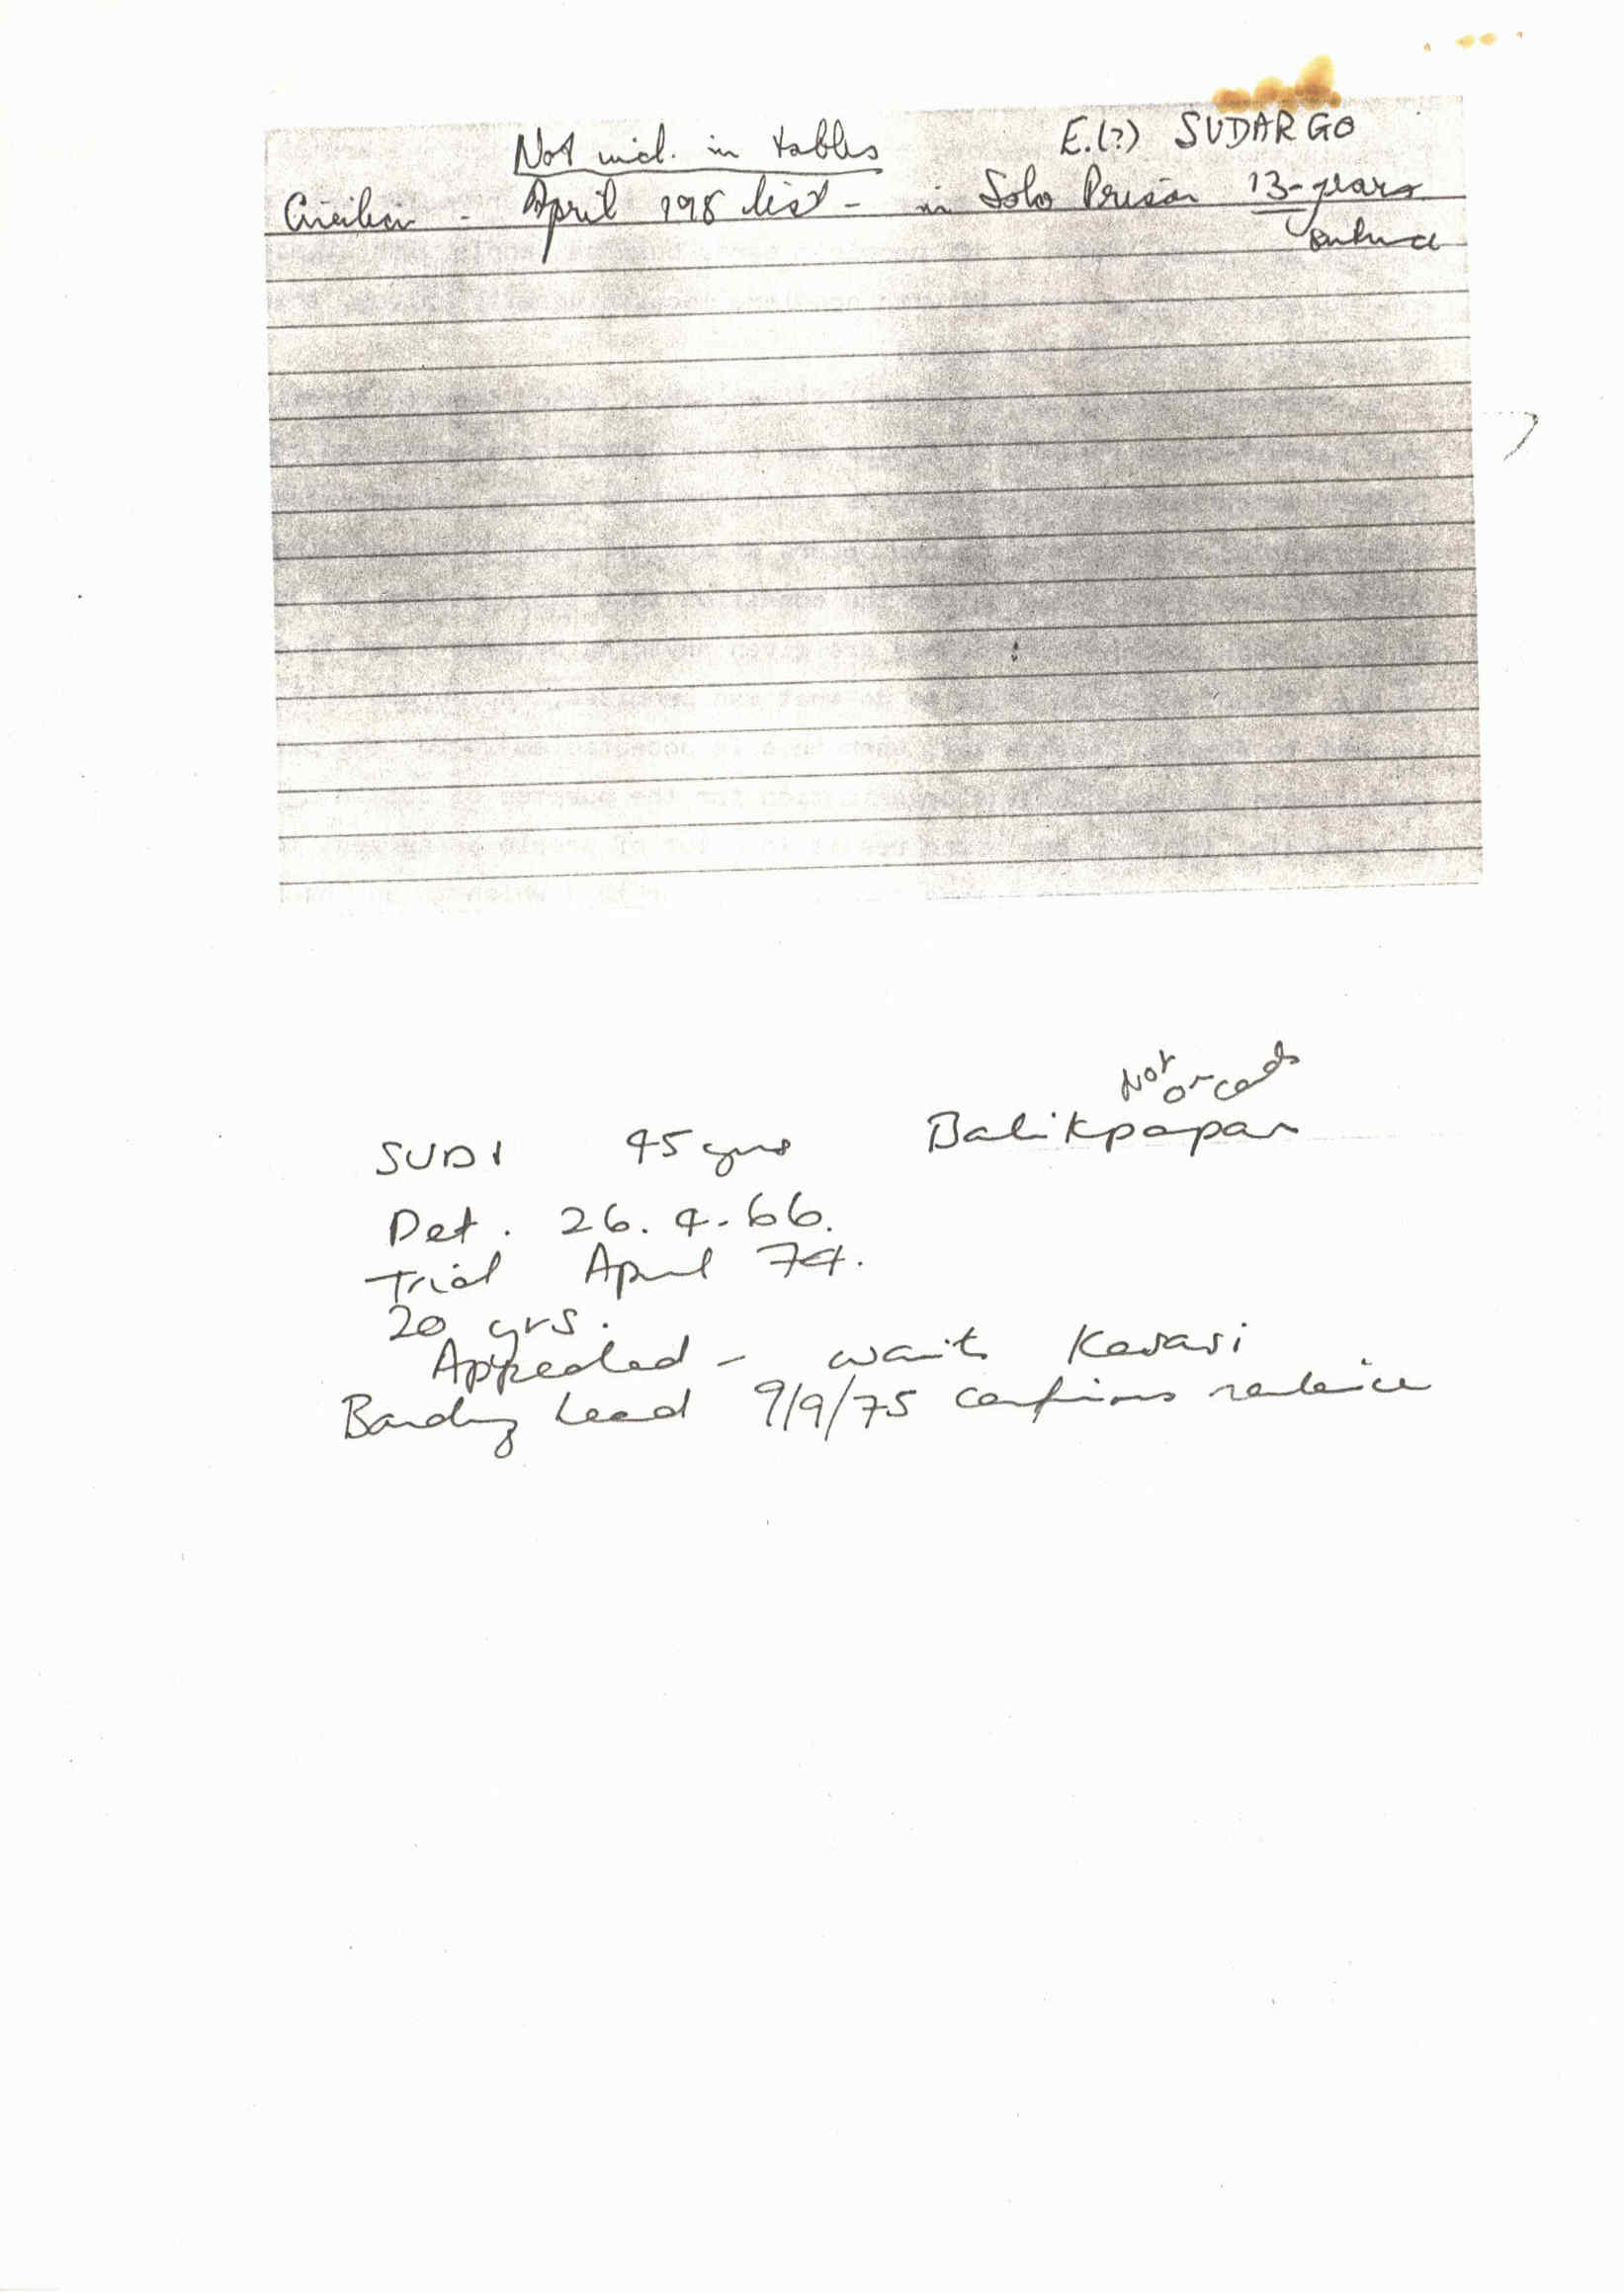 Not incl. in tables E.(?) SUDARGO
Civilian - April 198 list - in Solo Prison 13-years
Not on cards
SUDI 45 yrs Balikpapan
Det. 26.4.66.
Trial April 74.
20 yrs.
Appealed - waits Kasasi
Banding heard 9/9/75 confirms sentence